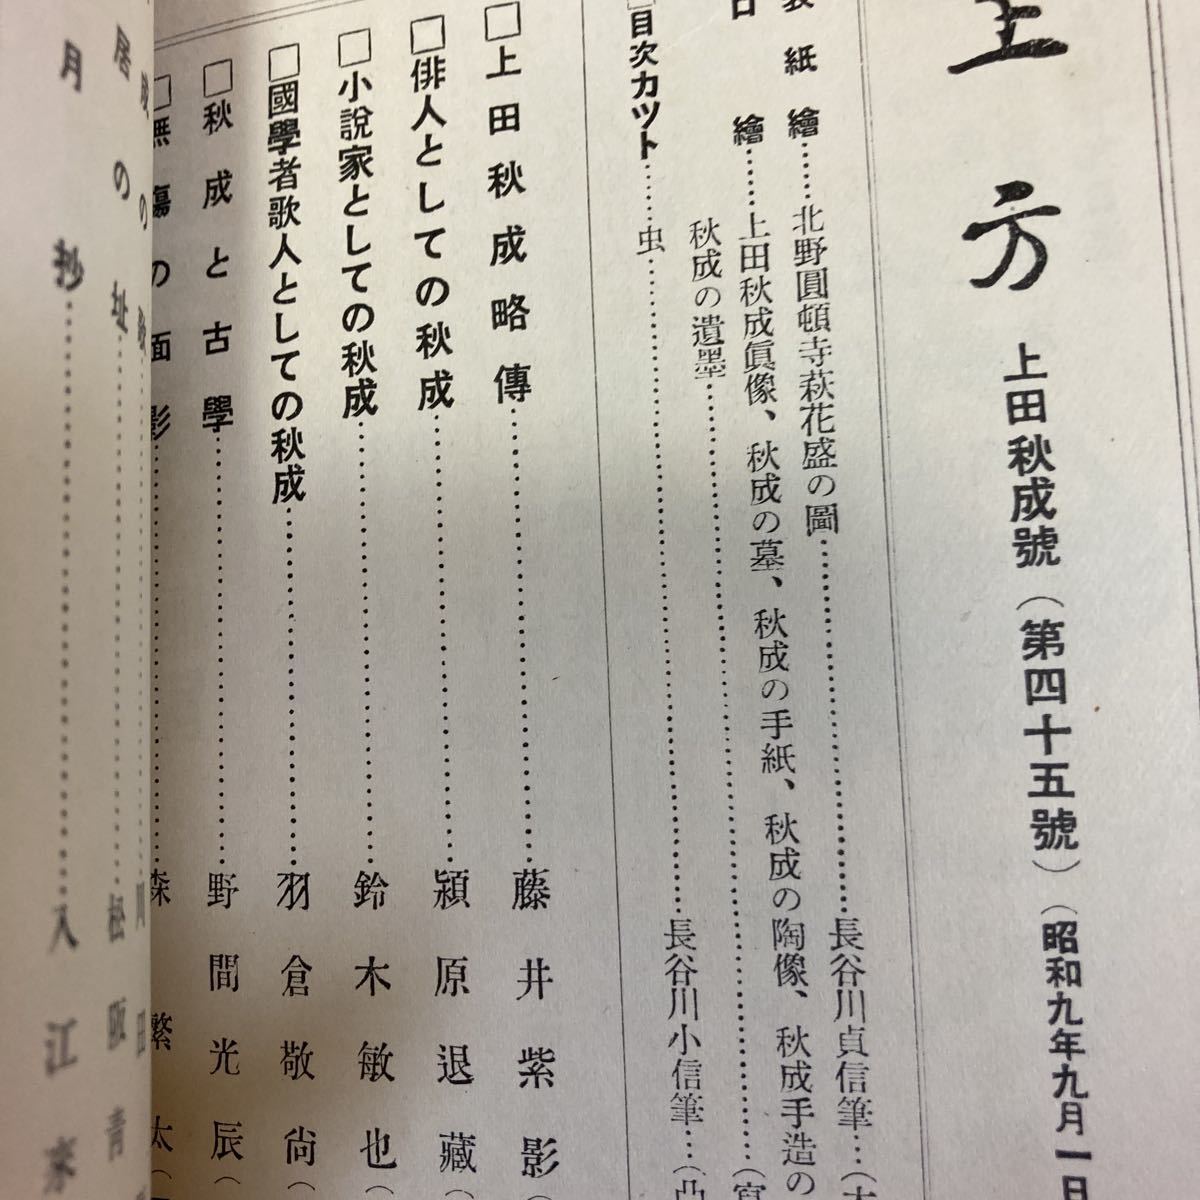 上方 上田秋成號（第四十五號）（昭和九年九月一日
表紙繪……北野圓頓寺萩花盛の圖……長谷川貞信筆…（
口繪……上田秋成眞像、秋成の墓、秋成の手紙、秋成の陶像、秋成手造の
秋成の遺墨……（
目次カツト……虫……長谷川小信筆…（凸
□上田秋成略傳……藤井紫影（
□俳人としての秋成……潁原退藏（
□小說家としての秋成……鈴木敏也（
□國學者歌人としての秋成……羽倉敬尙（
□秋成と古學……野間光辰（
□無腸の面影……森繁太（
の
川田
居の址……松阪青
月抄……入江來